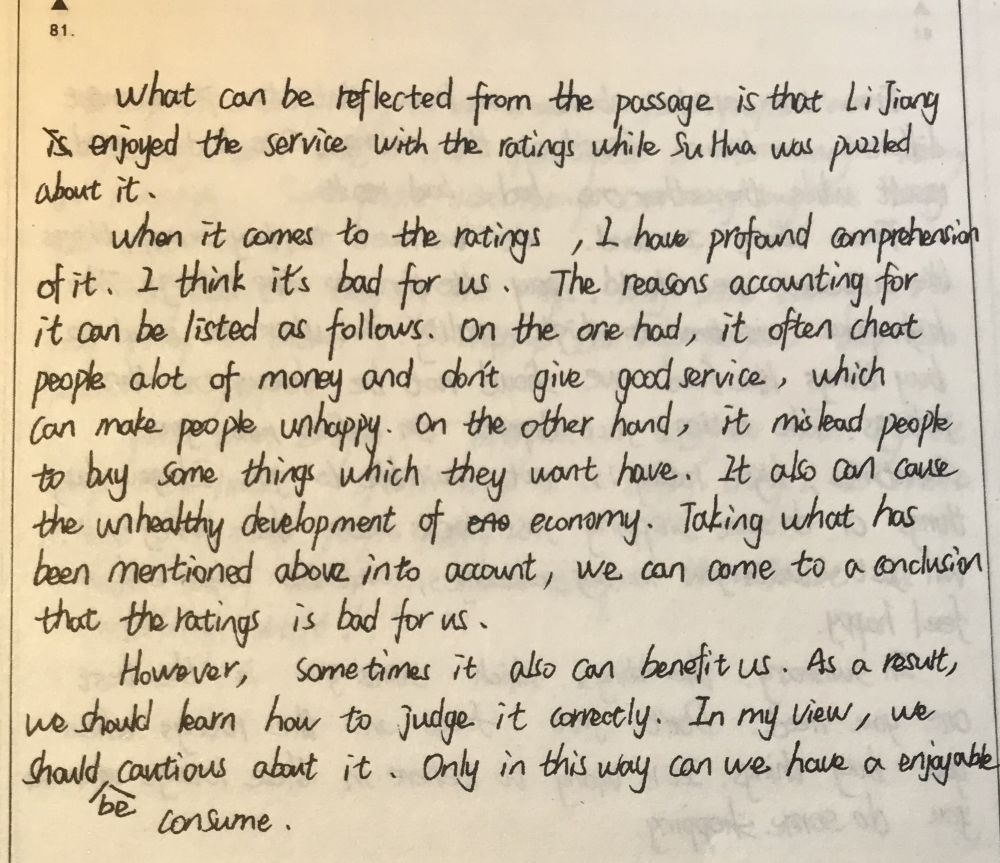 81.
What can be reflected from the passage is that Li Jiang
is enjoyed the service with the ratings while Su Hua was puzzled
about it.
When it comes to the ratings , I have profound comprehension
of it. I think it's bad for us. The reasons accounting for
it can be listed as follows. On the one had, it often cheat
people alot of money and don't give good service, which
can make people unhappy. On the other hand, it mislead people
to buy some things which they want have. It also can cause
the unhealthy development of eno economy. Taking what has
been mentioned above into account, we can come to a conclusion
that the ratings is bad for us.
However, sometimes it also can benefit us. As a result,
we should learn how to judge it correctly. In my view, we
should be cautious about it. Only in this way can we have a enjoyable
consume.